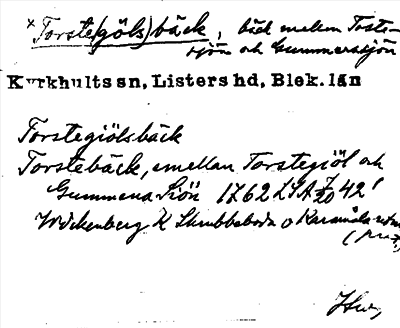 × Torste(göls)bäck, bäck mellan Torste-
sjön och Gummersjön
Kyrkhults sn, Listers hd, Blek. län
Torstegiölsbäck
Torstebäck, emellan Torstegiöl och
Gummena Siön 1762 LSA 42
Wickenberg K Skubbeboda o